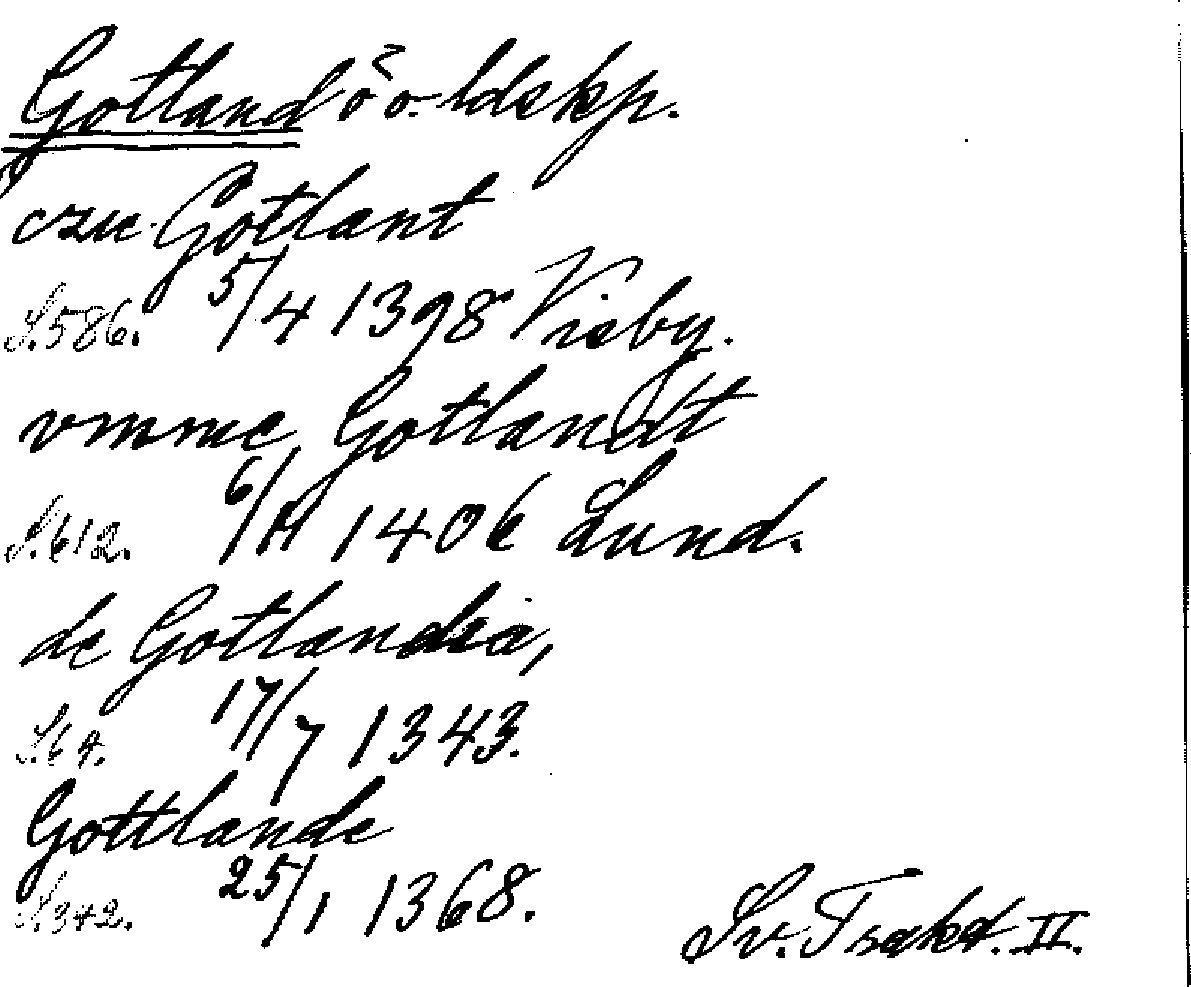 Gotland ö o. ldskp.
czu Gotlant
S. 586. 5/4 1398 Visby.
vmme Gotlandt
S. 612. 6/11 1406 Lund.
de Gotlandia,
S. 64. 17/7 1343.
Gottlande
S. 342. 25/1 1368.
Sv. Trakt. II.